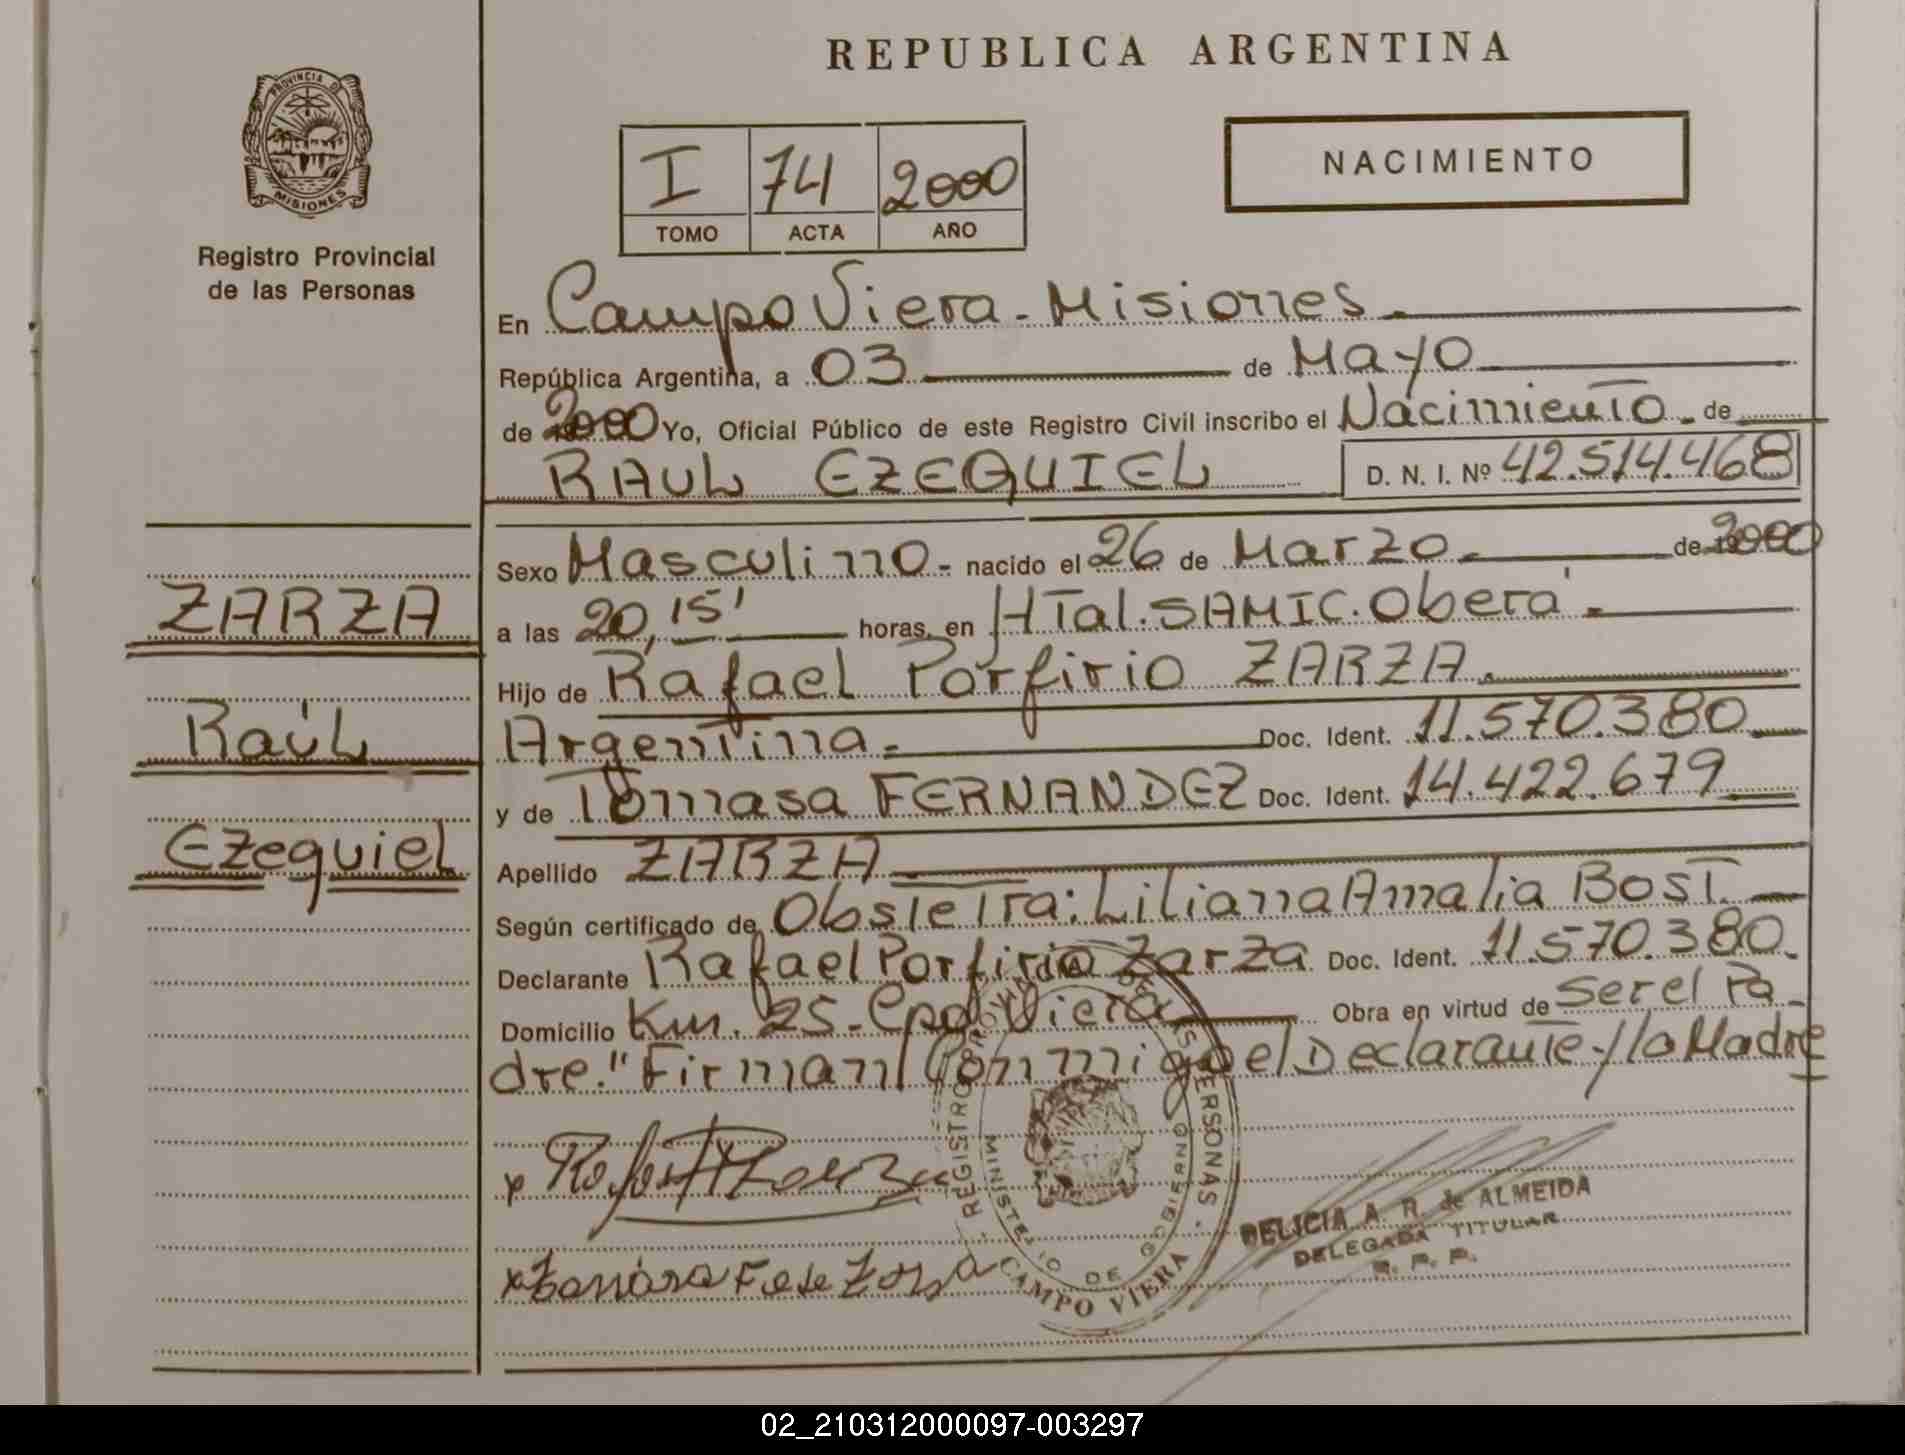 REPUBLICA ARGENTINA
PROVINCIA DE
MISIONES
Registro Provincial
de las Personas
NACIMIENTO
I 74 2000
TOMO ACTA AÑO
En Campo Viera - Misiones.
República Argentina, a 03 de Mayo
de 2000 Yo, Oficial Público de este Registro Civil inscribo el Nacimiento. de
RAUL EZEQUIEL D. N. I. Nº 42.514.468
Sexo Masculino - nacido el 26 de Marzo. de 2000
ZARZA
a las 20,15' horas, en HTal. SAMIC. Oberá.
Hijo de Rafael Porfirio ZARZA.
Raúl
Argentina. Doc. Ident. 11.570.380
y de Tomasa FERNANDEZ Doc. Ident. 14.422.679
Ezequiel
Apellido ZARZA
Según certificado de Obstetra: Liliana Amalia BOST.
Declarante Rafael Porfirio Zarza Doc. Ident. 11.570.380.
Domicilio Km. 25 - Cpo. Viera Obra en virtud de ser el Pa
dre." Firman Conmigo el Declarante y la Madre
REGISTRO PROVINCIAL DE LAS PERSONAS
MINISTERIO DE GOBIERNO
CAMPO VIERA
DELICIA A. R. de ALMEIDA
DELEGADA TITULAR
R. P. P.
02_210312000097-003297